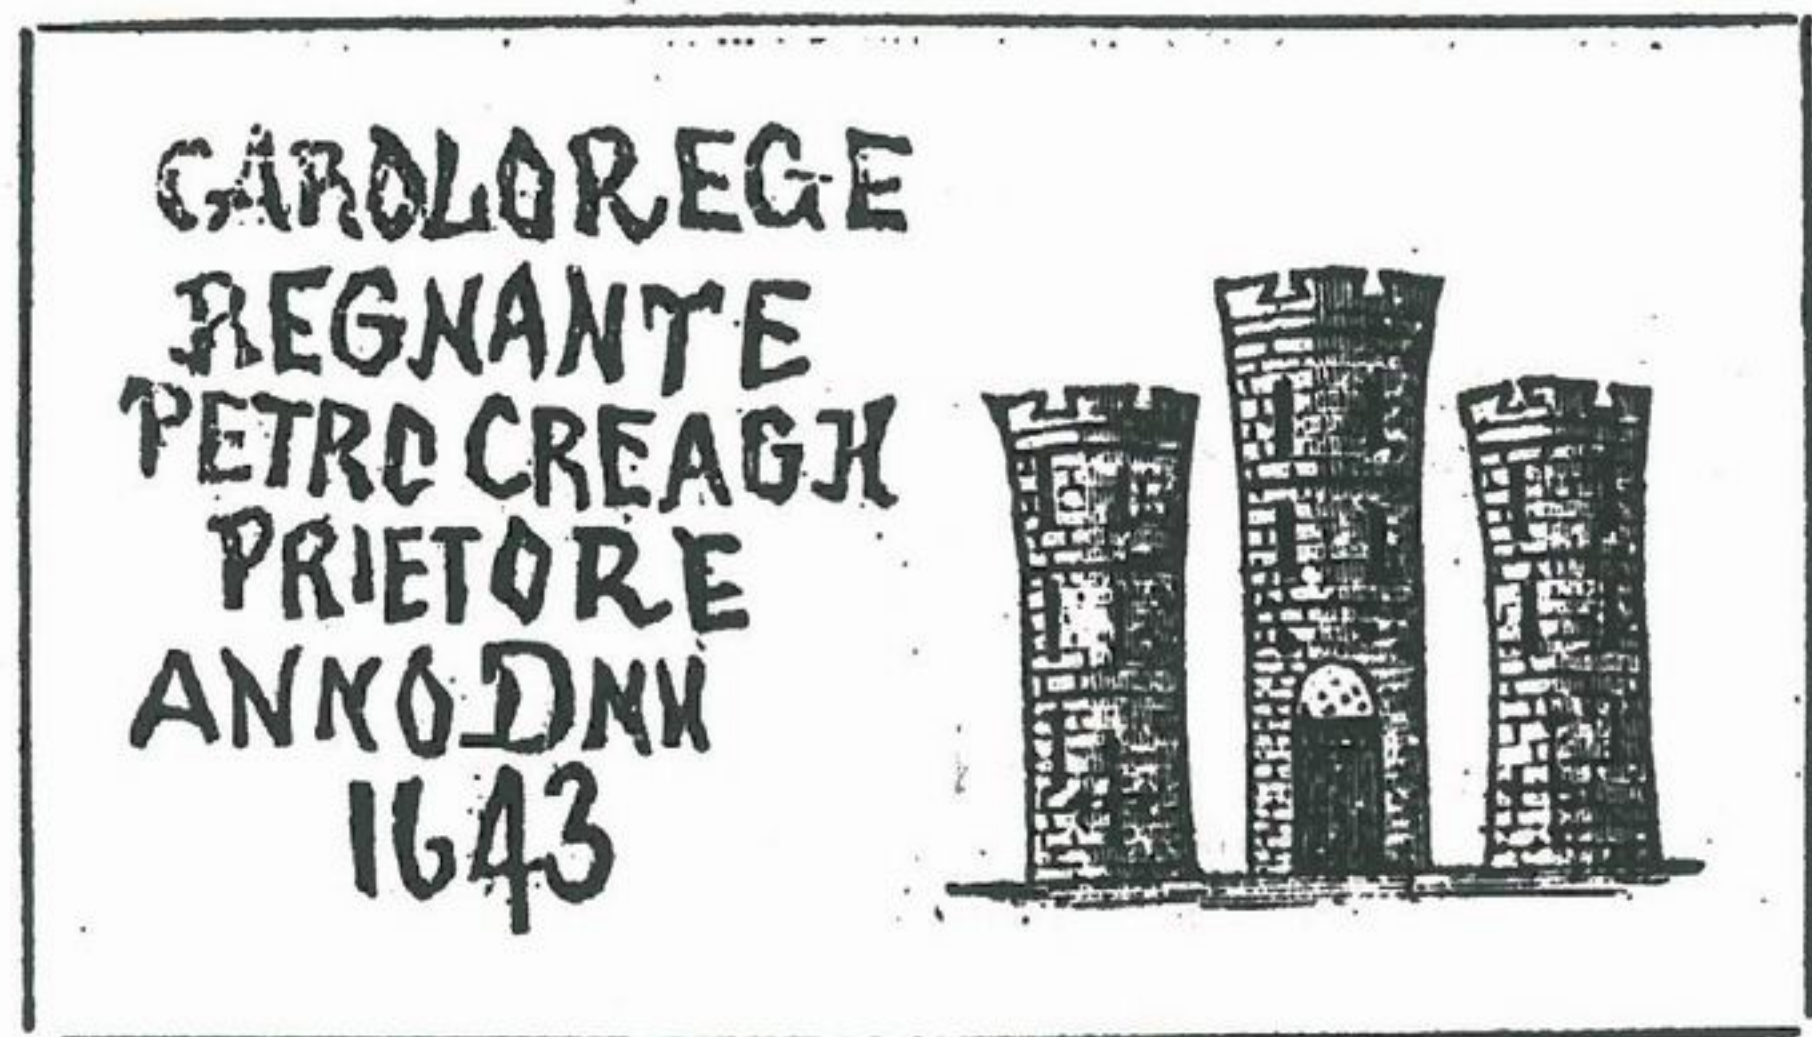 CAROLO REGE
REGNANTE
PETRO CREAGH
PRIETORE
ANNO DNN
1643